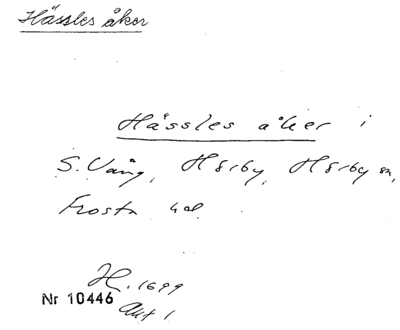 Hässles åker
Hässles åker i
S. Vång, Hörby, Hörby sn,
Frosta hd.
H. 1699
Nr 10446
Akt 1